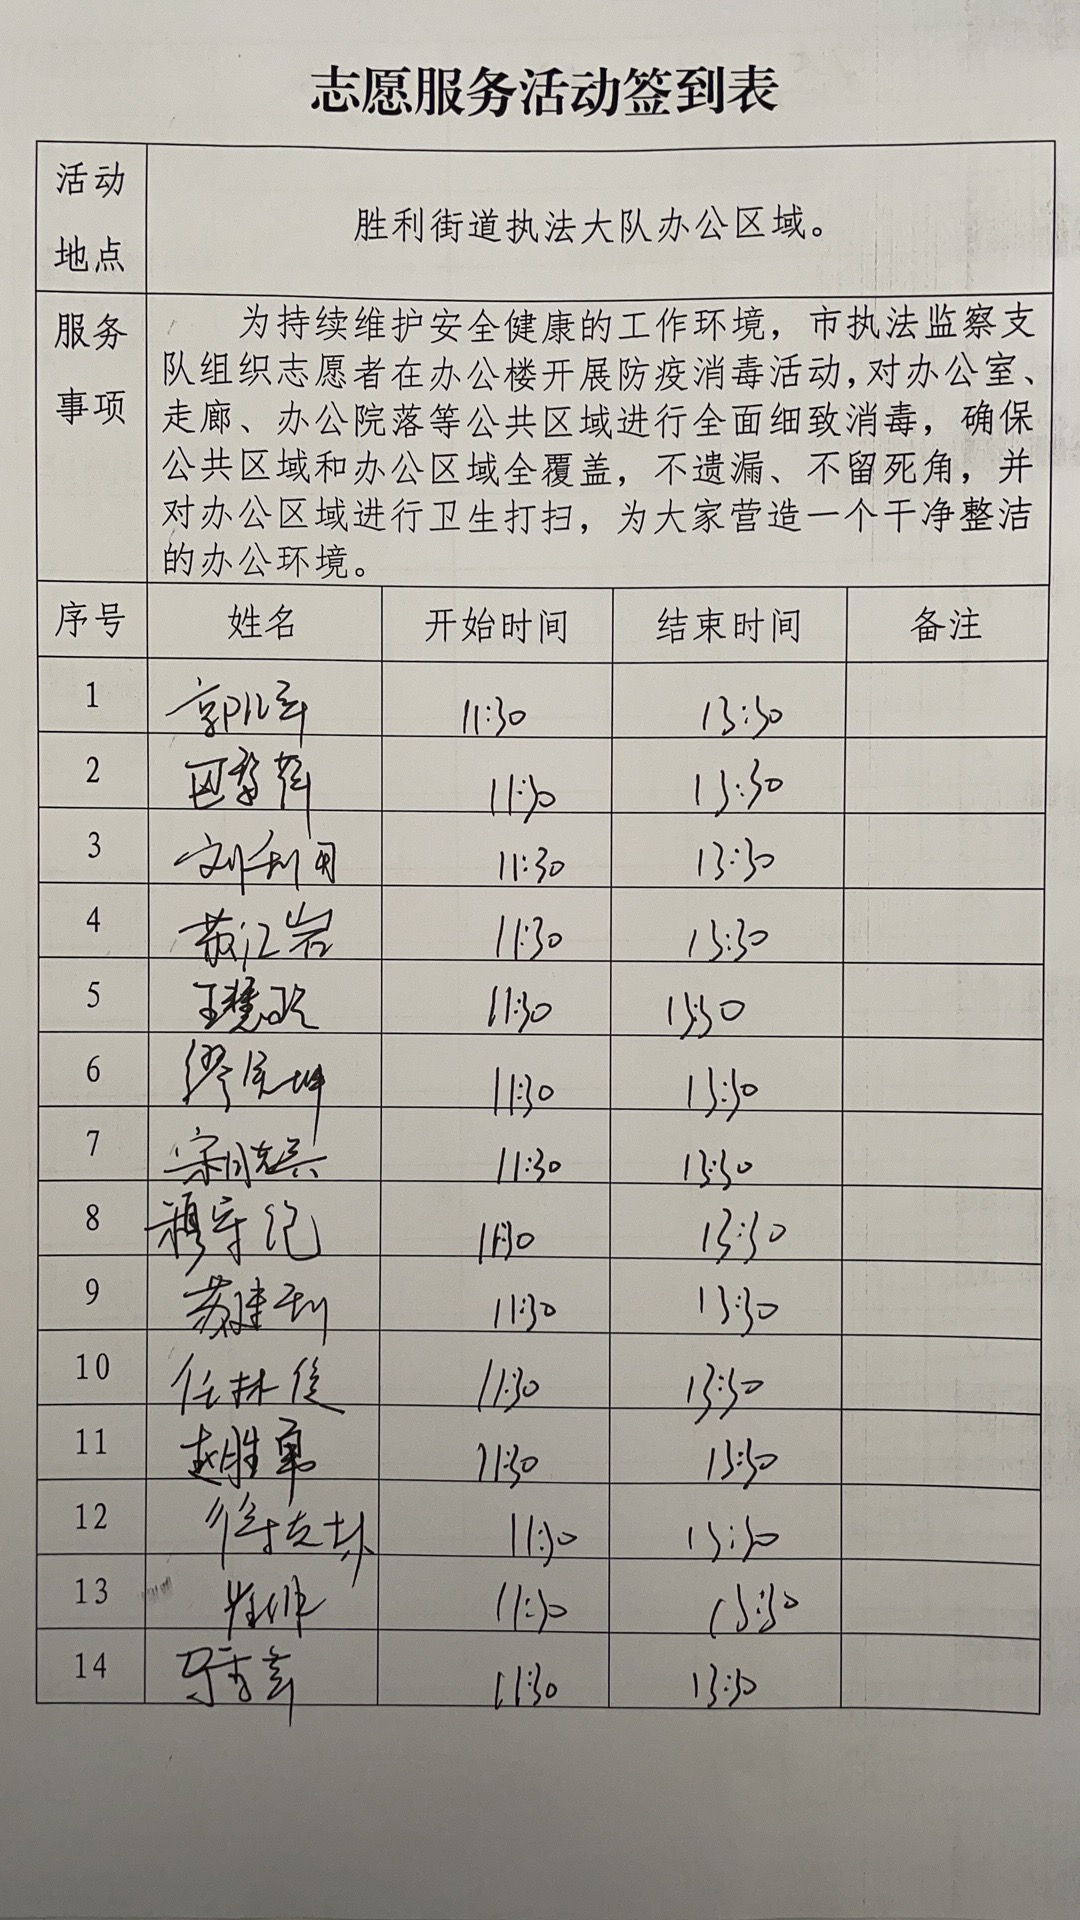 志愿服务活动签到表
活动
地点
胜利街道执法大队办公区域。
服务
事项
为持续维护安全健康的工作环境，市执法监察支
队组织志愿者在办公楼开展防疫消毒活动，对办公室、
走廊、办公院落等公共区域进行全面细致消毒，确保
公共区域和办公区域全覆盖，不遗漏、不留死角，并
对办公区域进行卫生打扫，为大家营造一个干净整洁
的办公环境。
序号 姓名 开始时间 结束时间 备注
1 11:30 13:30
2 11:30 13:30
3 刘利国 11:30 13:30
4 11:30 13:30
5 11:30 13:30
6 11:30 13:30
7 11:30 13:30
8 穆守纪 11:30 13:30
9 苏建利 11:30 13:30
10 任林俊 11:30 13:30
11 赵胜军 11:30 13:30
12 11:30 13:30
13 崔伟 11:30 13:30
14 11:30 13:30